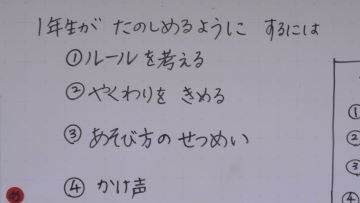 1年生が たのしめるように するには
①ルールを考える
②やくわりを きめる
③あそび方の せつめい
④かけ声
①
②
③
④